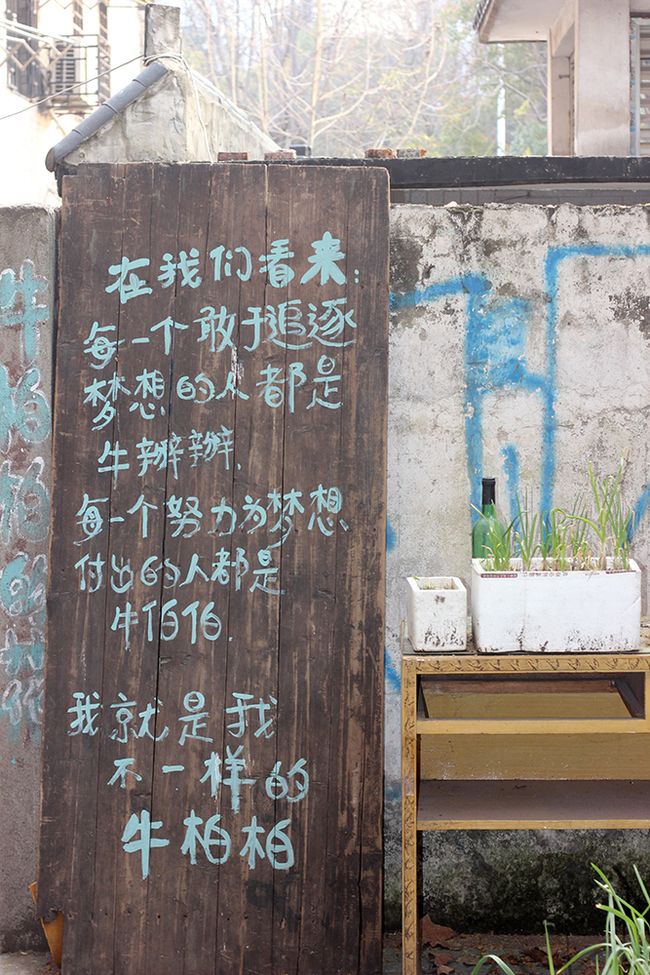 在我们看来:
每一个敢于追逐
梦想的人都是
牛瓣瓣.
每一个努力为梦想
付出的人都是
牛伯伯.
我就是我
不一样的
牛柏柏
牛伯伯的